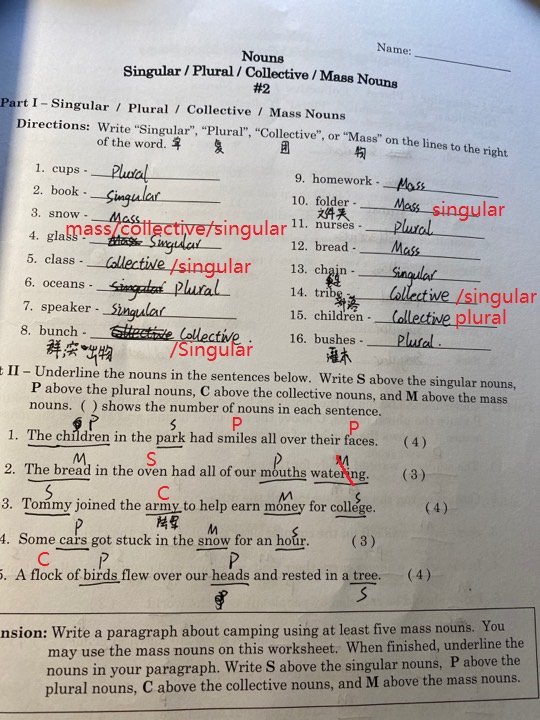 Name:
Nouns
Singular / Plural / Collective / Mass Nouns
#2
Part I – Singular / Plural / Collective / Mass Nouns
Directions: Write “Singular”, “Plural”, “Collective”, or “Mass” on the lines to the right
of the word. 单 复 团 物
1. cups - Plural
2. book - Singular
3. snow - Mass
mass/collective/singular
4. glass - Mass Singular
5. class - Collective /singular
6. oceans - Singular Plural
7. speaker - Singular
8. bunch - Collective Collective.
/Singular
群,突出物
9. homework - Mass
10. folder - Mass singular
文件夹
11. nurses - Plural
12. bread - Mass
13. chain - Singular
14. tribe - Collective /singular
部落
15. children - Collective plural
16. bushes - Plural.
灌木
t II – Underline the nouns in the sentences below. Write S above the singular nouns,
P above the plural nouns, C above the collective nouns, and M above the mass
nouns. ( ) shows the number of nouns in each sentence.
P S P P
1. The children in the park had smiles all over their faces. (4)
M S P M
2. The bread in the oven had all of our mouths watering. (3)
S C M S
3. Tommy joined the army to help earn money for college. (4)
陆军
P M S
4. Some cars got stuck in the snow for an hour. (3)
C P P
5. A flock of birds flew over our heads and rested in a tree. (4)
S
nsion: Write a paragraph about camping using at least five mass nouns. You
may use the mass nouns on this worksheet. When finished, underline the
nouns in your paragraph. Write S above the singular nouns, P above the
plural nouns, C above the collective nouns, and M above the mass nouns.